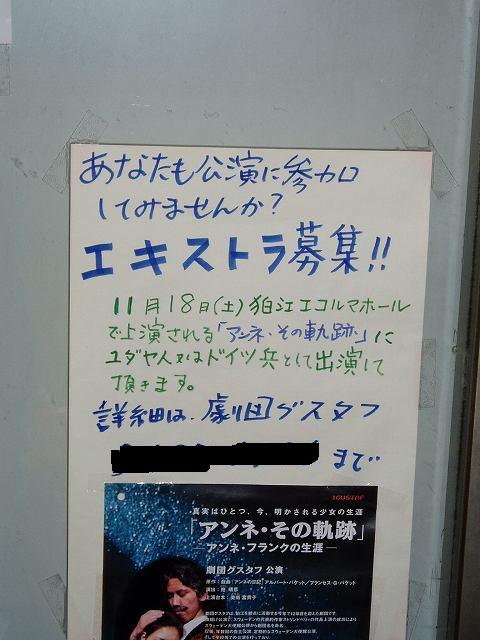 あなたも公演に参加
してみませんか?
エキストラ募集!!
11月18日(土)狛江エコルマホール
で上演される「アンネ・その軌跡」に
ユダヤ人又はドイツ兵として出演して
頂きます。
詳細は、劇団グスタフ
まで
GUSTAF
真実はひとつ、今、明かされる少女の生涯
「アンネ・その軌跡」
―アンネ・フランクの生涯―
劇団グスタフ 公演